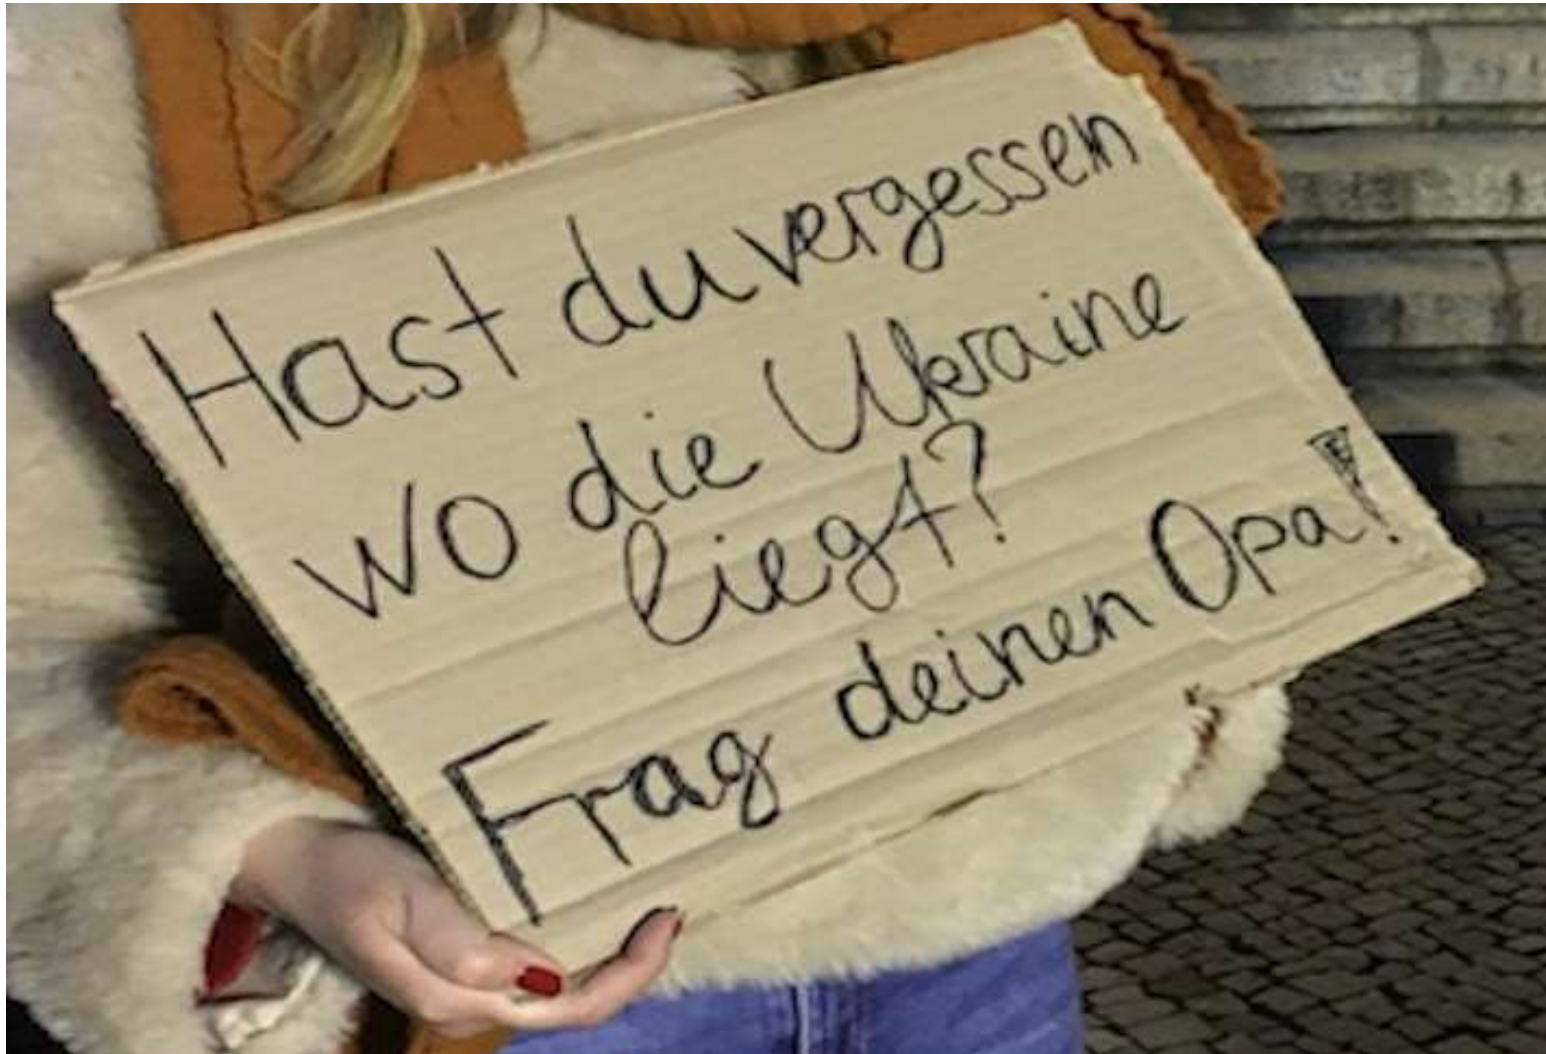 Hast du vergessen
wo die Ukraine
liegt?
Frag deinen Opa!